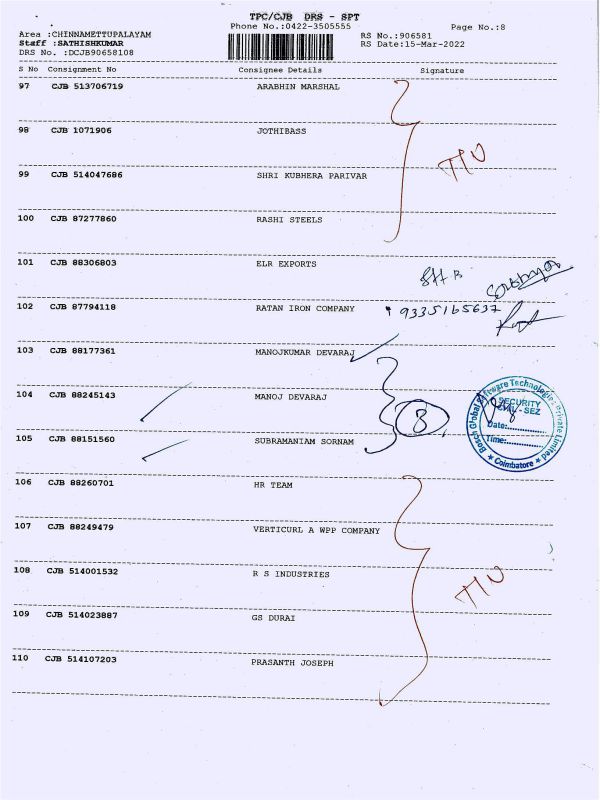 TPC/CJB DRS - SPT
Phone No.:0422-3505555
Page No.:8
Area :CHINNAMETTUPALAYAM
RS No.:906581
Staff :SATHISHKUMAR
RS Date:15-Mar-2022
DRS No. :DCJB90658108
S No Consignment No Consignee Details Signature
97 CJB 513706719 ARABHIN MARSHAL
98 CJB 1071906 JOTHIBASS
99 CJB 514047686 SHRI KUBHERA PARIVAR
100 CJB 87277860 RASHI STEELS
101 CJB 88306803 ELR EXPORTS
102 CJB 87794118 RATAN IRON COMPANY 9335165637
103 CJB 88177361 MANOJKUMAR DEVARAJ
104 CJB 88245143 MANOJ DEVARAJ
105 CJB 88151560 SUBRAMANIAM SORNAM
Bosch Global Software Technologies Private Limited
SECURITY
CHIL - SEZ
Date:
Time:
Coimbatore
106 CJB 88260701 HR TEAM
107 CJB 88249479 VERTICURL A WPP COMPANY
108 CJB 514001532 R S INDUSTRIES
109 CJB 514023887 GS DURAI
110 CJB 514107203 PRASANTH JOSEPH